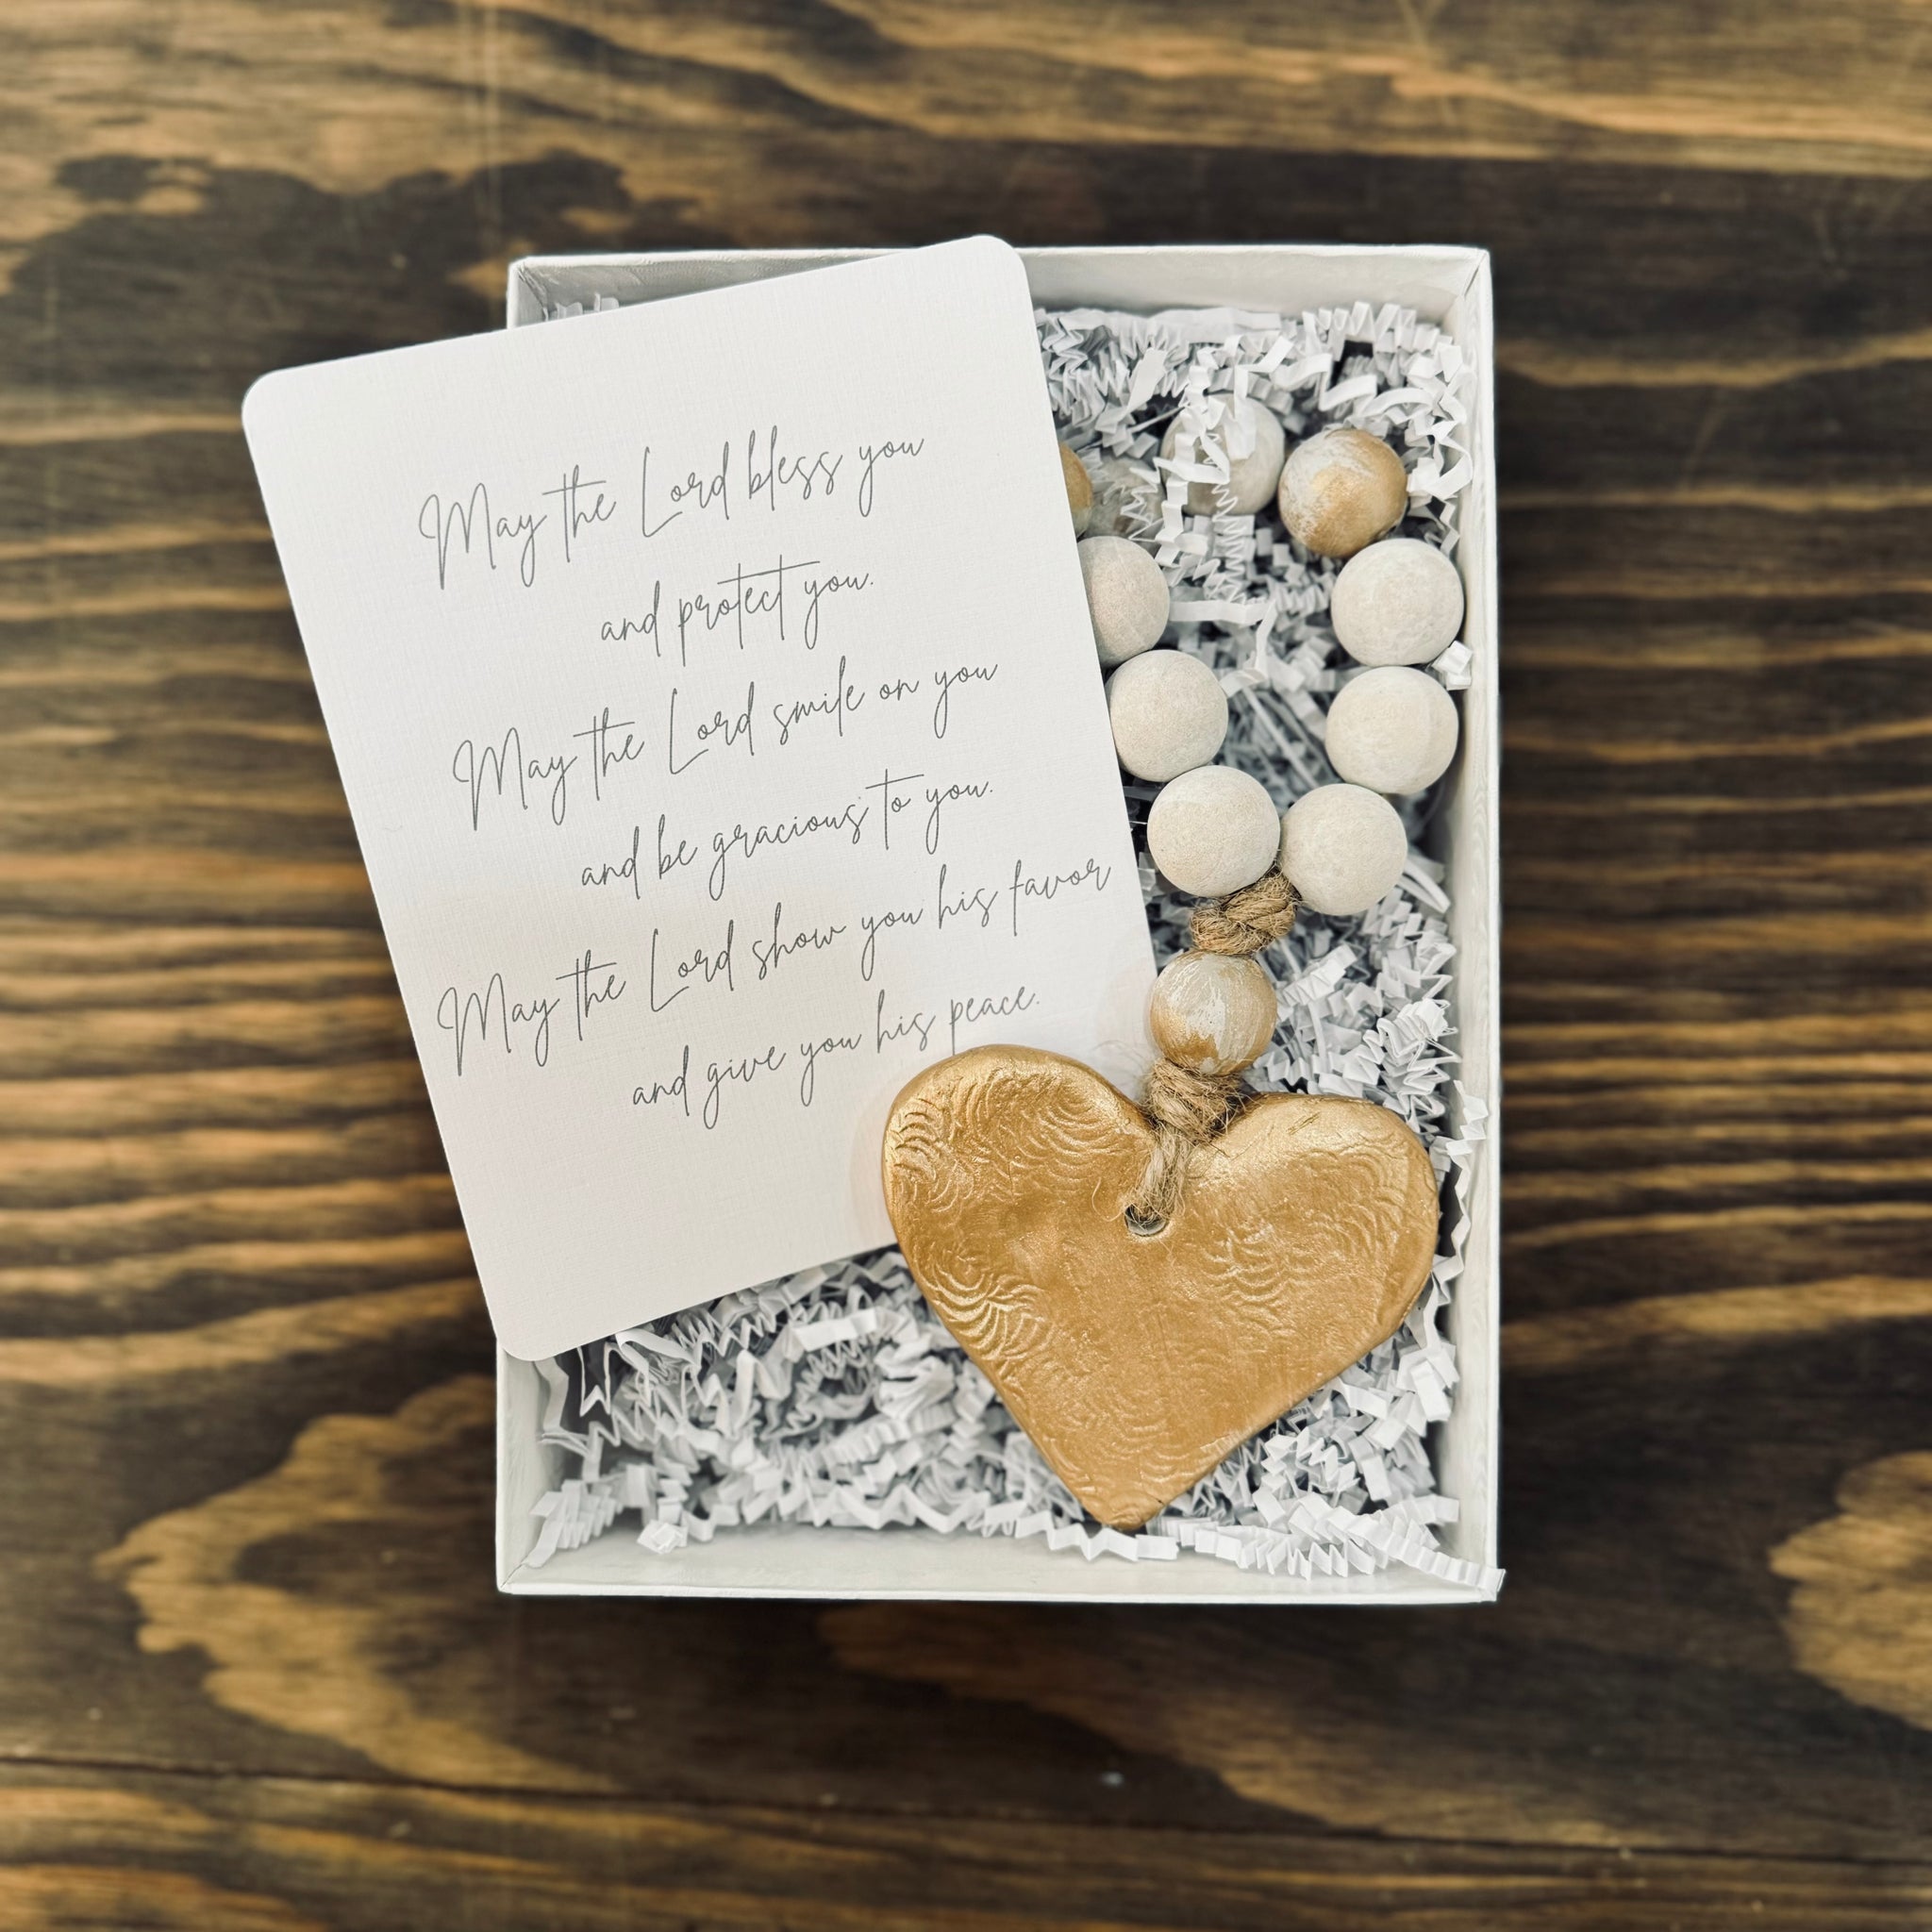 May the Lord bless you
and protect you.
May the Lord smile on you
and be gracious to you.
May the Lord show you his favor
and give you his peace.